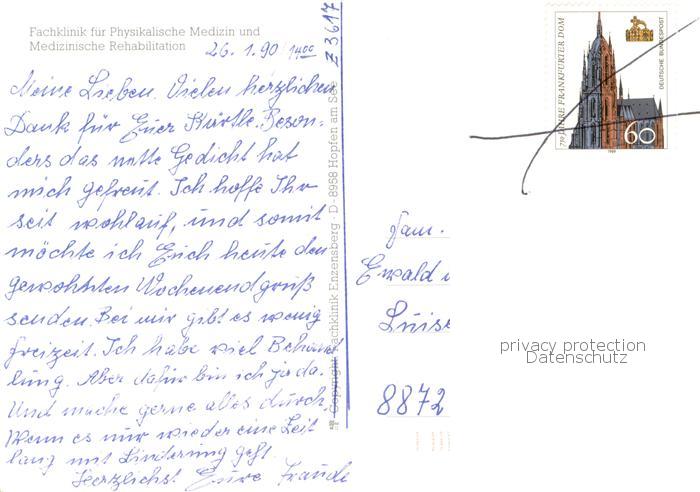 Fachklinik für Physikalische Medizin und
Medizinische Rehabilitation
26.1.90 14⁰⁰
Meine Lieben. Vielen herzlichen
Dank für Euer Kärtle. Beson-
ders das nette Gedicht hat
mich gefreut. Ich hoffe Ihr
seit wohlauf, und somit
möchte ich Euch heute den
gewohnten Wochenendgruß
senden. Bei mir gibt es wenig
Freizeit. Ich habe viel Behand
lung. Aber dafür bin ich ja da.
Und mache gerne alles durch.
Wenn es nur wieder eine Zeit
lang mit Linderung geht.
Herzlichst Eure Fraudl
Z 3617
Copyright Fachklinik Enzensberg · D-8958 Hopfen am See
750 JAHRE FRANKFURTER DOM
DEUTSCHE BUNDESPOST
60
1989
Fam.
Ewald u
Luise
8872
privacy protection
Datenschutz